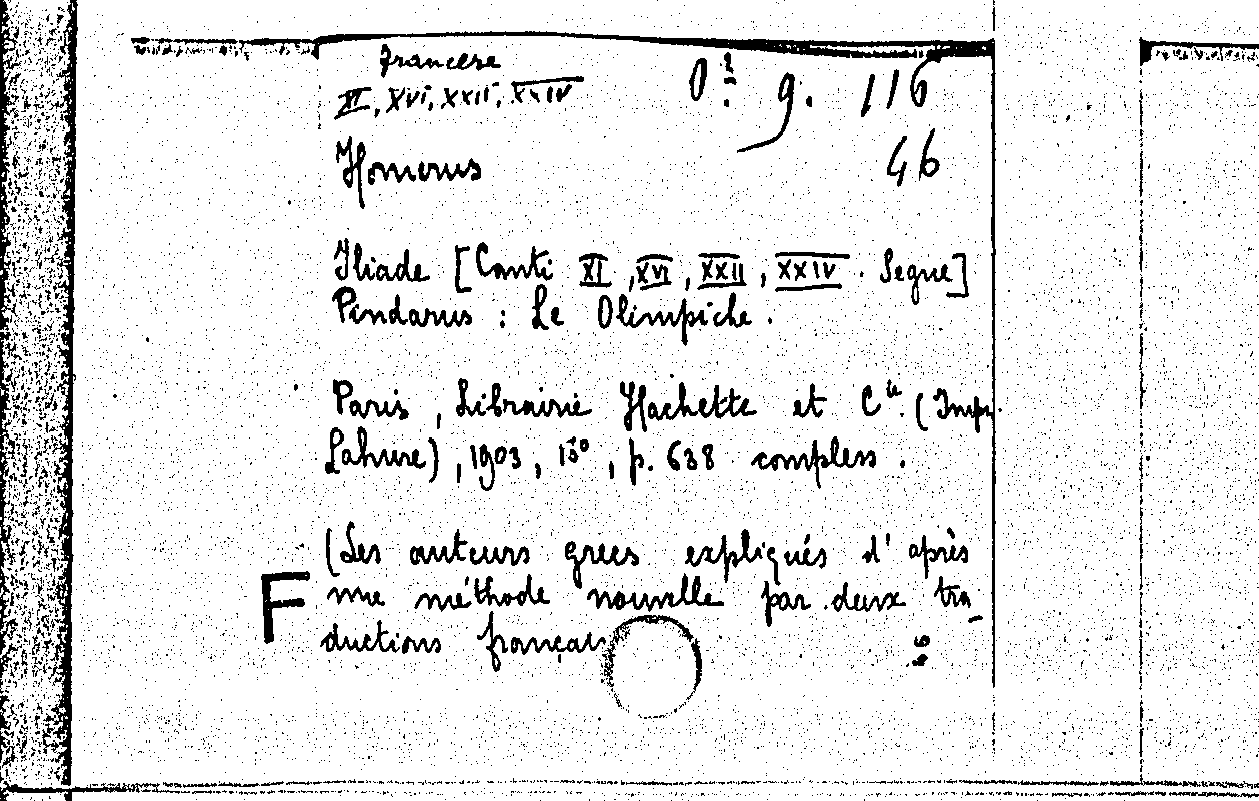 Francese
XI, XVI, XXII, XXIV
O. g. 116
Homerus
46
Iliade [Canti XI, XVI, XXII, XXIV. Segue]
Pindarus : Le Olimpiche.
Paris, Librairie Hachette et Cie. (Impr.
Lahure), 1903, 15°, p. 638 compless.
(Les auteurs grecs expliqués d'après
F
une méthode nouvelle par deux tra-
ductions français